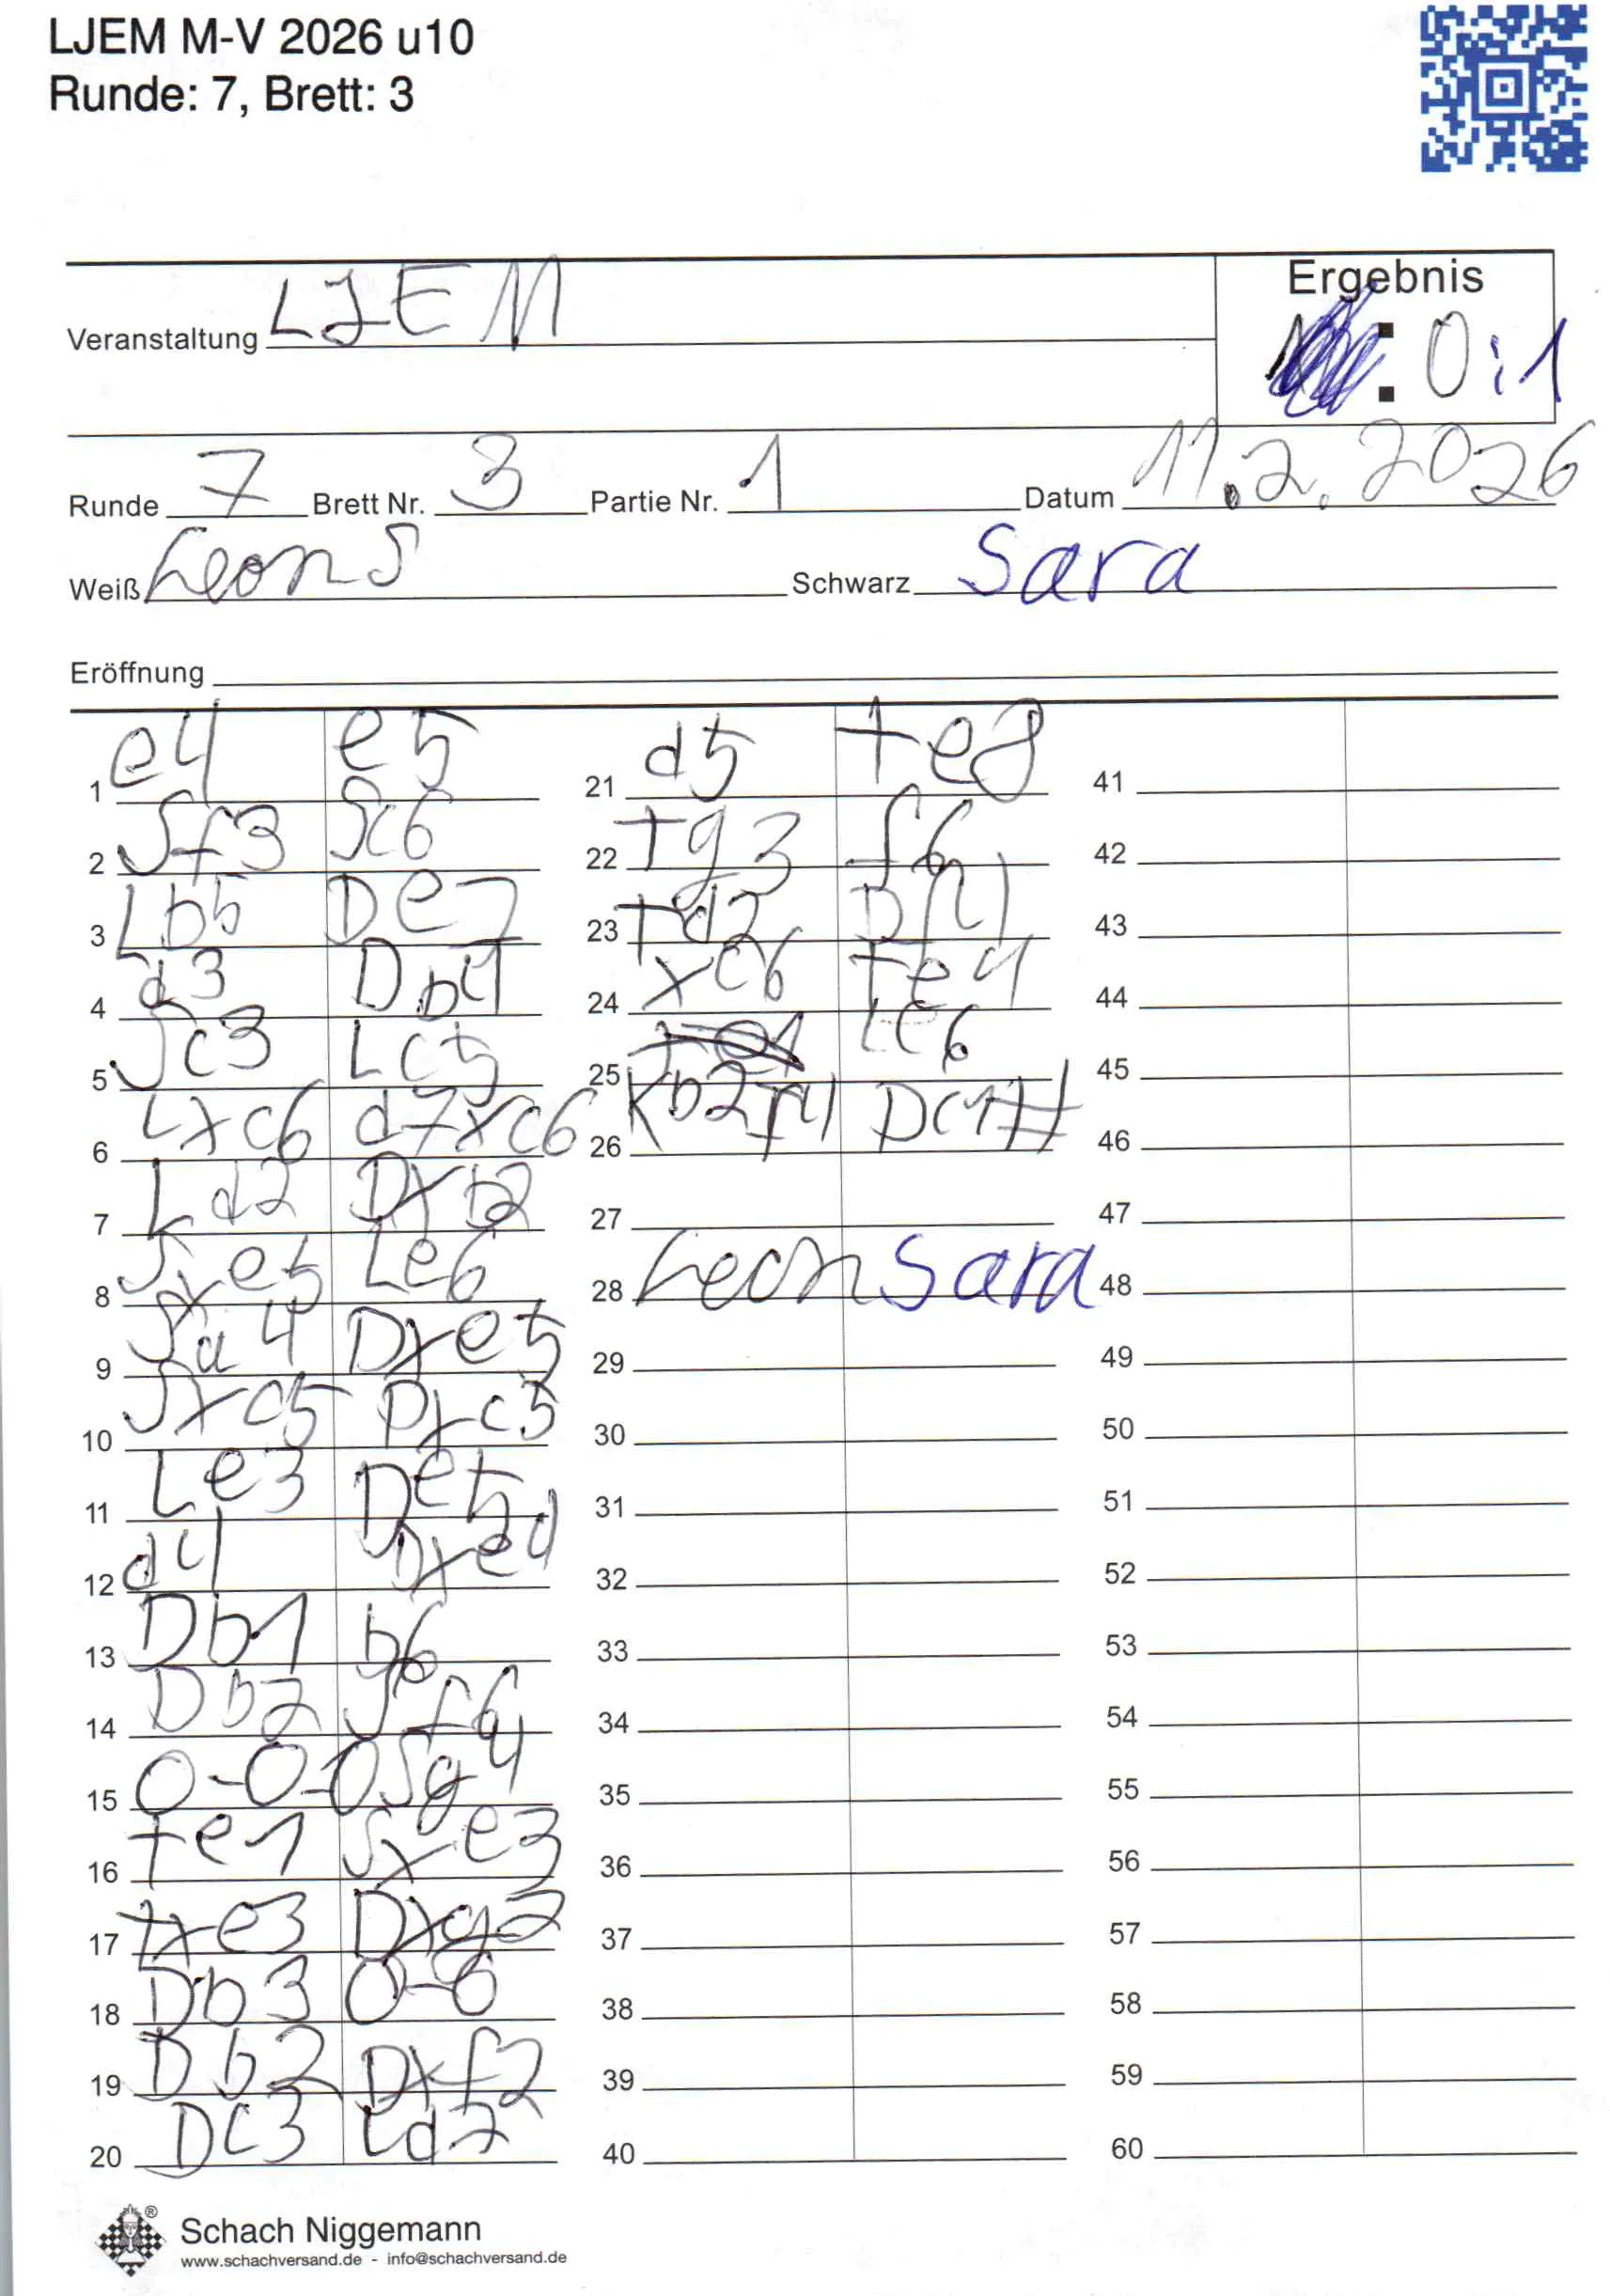 LJEM M-V 2026 u10
Runde: 7, Brett: 3
Ergebnis
Veranstaltung LJEM
: 0:1
Runde 7 Brett Nr. 3 Partie Nr. 1 Datum 11.2.2026
Weiß Leon S Schwarz Sara
Eröffnung
1 e4 e5 21 d5 te8 41
2 Sf3 Sc6 22 Tg3 f6 42
3 Lb5 De7 23 Td2 Df1 43
4 d3 Db4 24 xc6 te4 44
5 Sc3 Lc5 25 Le6 45
6 Lxc6 d7xc6 26 Kb2 f4 Dc1# 46
7 Ld2 Dxb2 27 47
8 Sxe5 Le6 28 Leon Sara 48
9 Sa4 Dxe5 29 49
10 Sxc5 Dxc5 30 50
11 Le3 De5 31 51
12 d4 Dxe4 32 52
13 Db1 b6 33 53
14 Db2 Sf6 34 54
15 0-0-0 Sg4 35 55
16 te1 Sxe3 36 56
17 txe3 Dxg2 37 57
18 Db3 0-0 38 58
19 Db2 Dxf2 39 59
20 Dc3 Ld7 40 60
Schach Niggemann
www.schachversand.de - info@schachversand.de